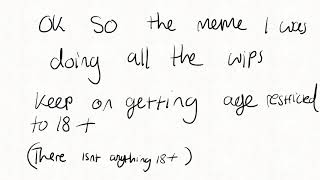 OK SO the meme I was
doing all the wips
keep on getting age restricted
to 18+
(There isnt anything 18+)